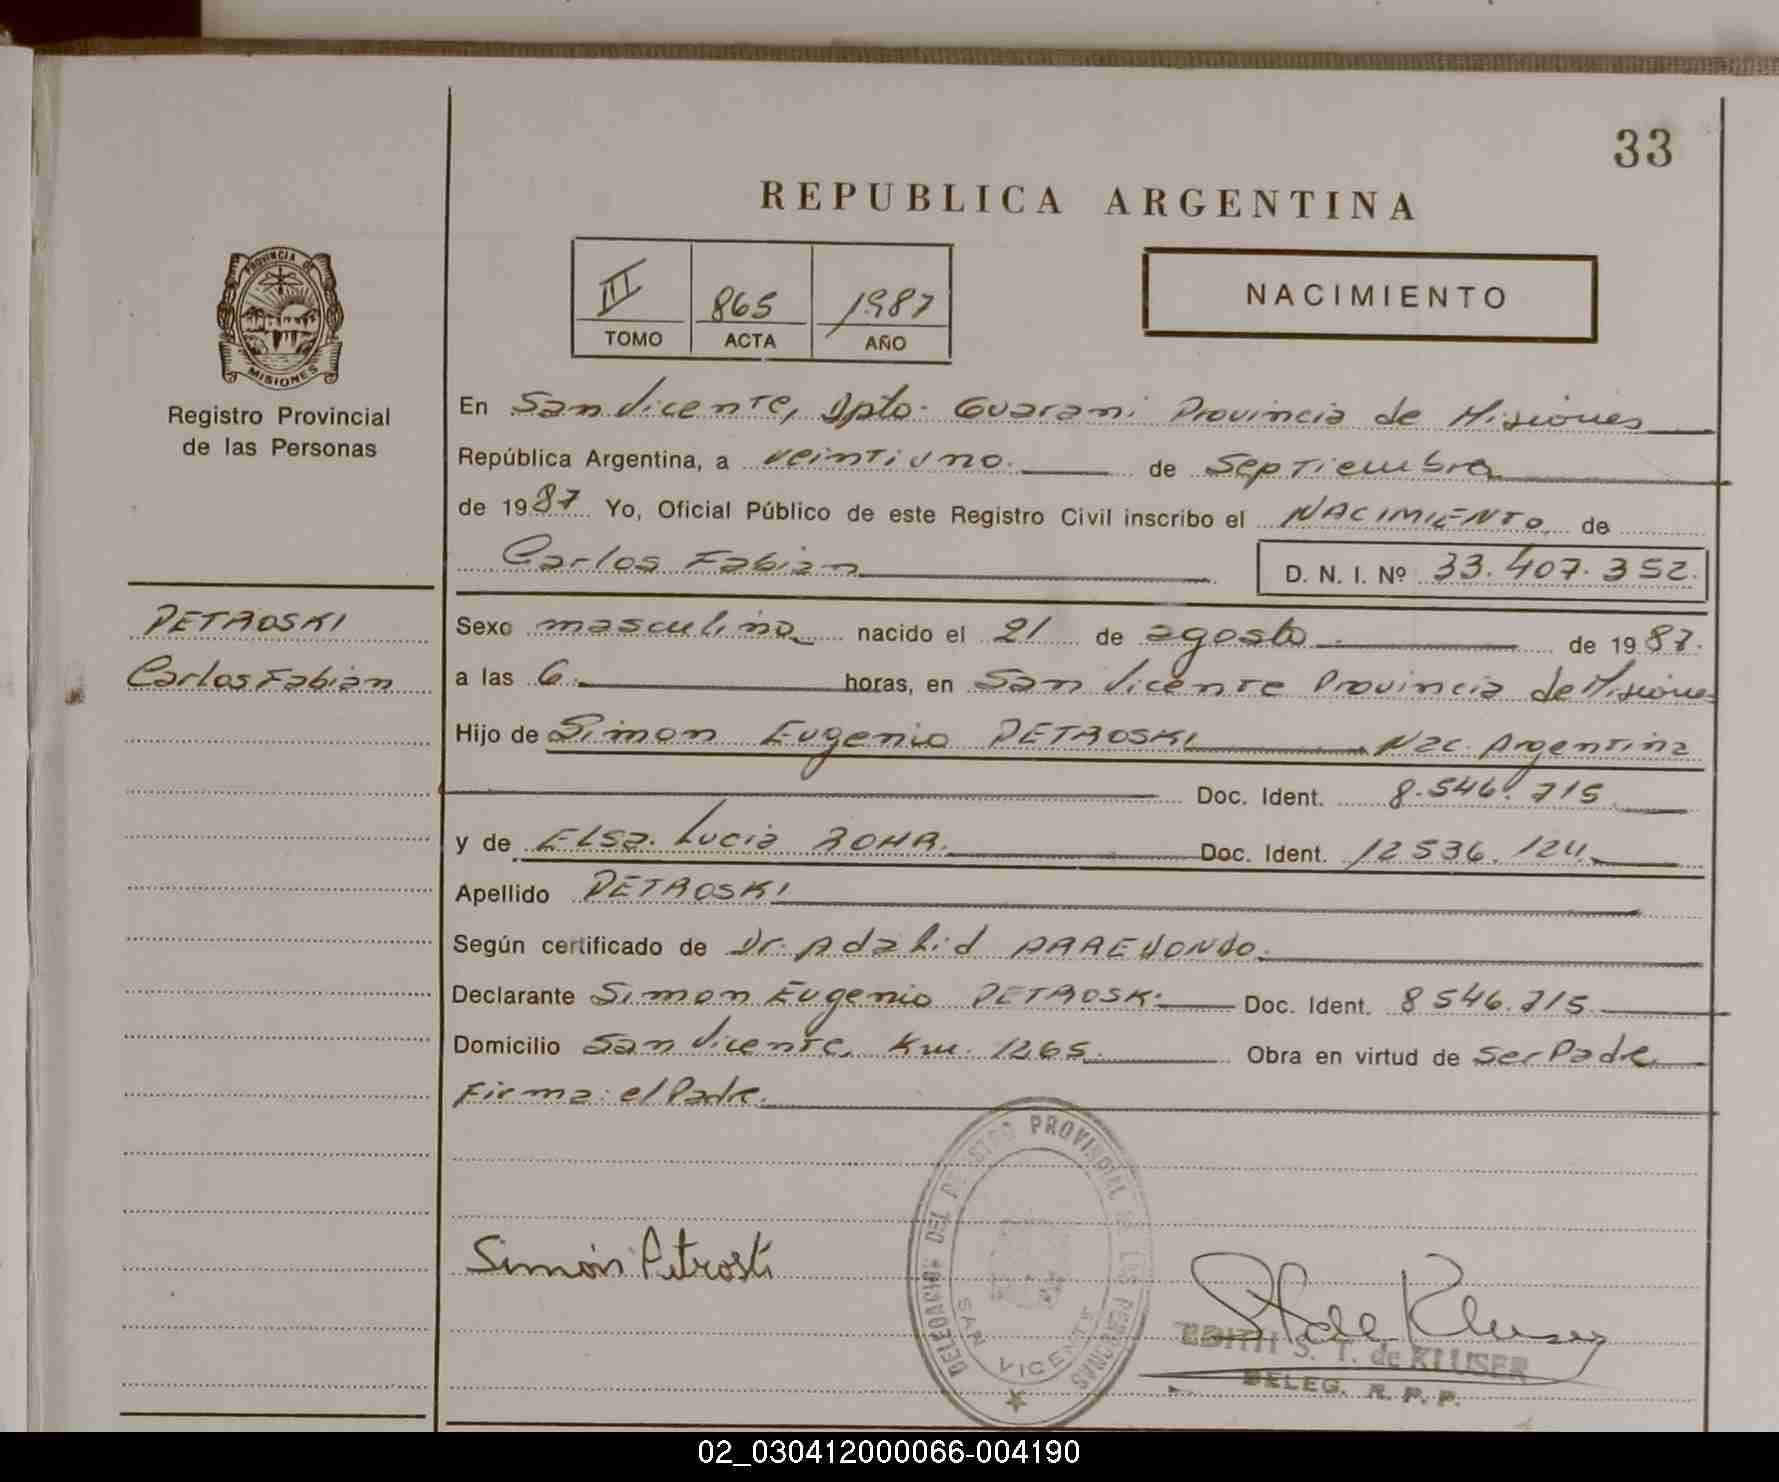 33
REPUBLICA ARGENTINA
PROVINCIA DE
MISIONES
Registro Provincial
de las Personas
III 865 1987
TOMO ACTA AÑO
NACIMIENTO
En San Vicente, Dpto. Guarani Provincia de Misiones
República Argentina, a veintiuno. de Septiembre
de 1987 Yo, Oficial Público de este Registro Civil inscribo el NACIMIENTO de
Carlos Fabian D. N. I. Nº 33.407.352.
PETROSKI
Carlos Fabian
Sexo masculino nacido el 21 de agosto de 1987.
a las 6. horas, en San Vicente Provincia de Misiones
Hijo de Simon Eugenio PETROSKI Nac. Argentina
Doc. Ident. 8.546.715
y de Elsa Lucia ROHR. Doc. Ident. 12536.124
Apellido PETROSKI
Según certificado de Dr. Adalid ARREDONDO.
Declarante Simon Eugenio PETROSKI Doc. Ident. 8546.715.
Domicilio San Vicente, Km. 1265. Obra en virtud de ser Padre
Firma: el Padre.
Simón Petroski
DELEGACION DEL REGISTRO PROVINCIAL DE LAS PERSONAS
SAN VICENTE
EDITH S. T. de KLUSER
DELEG. R. P. P.
02_030412000066-004190